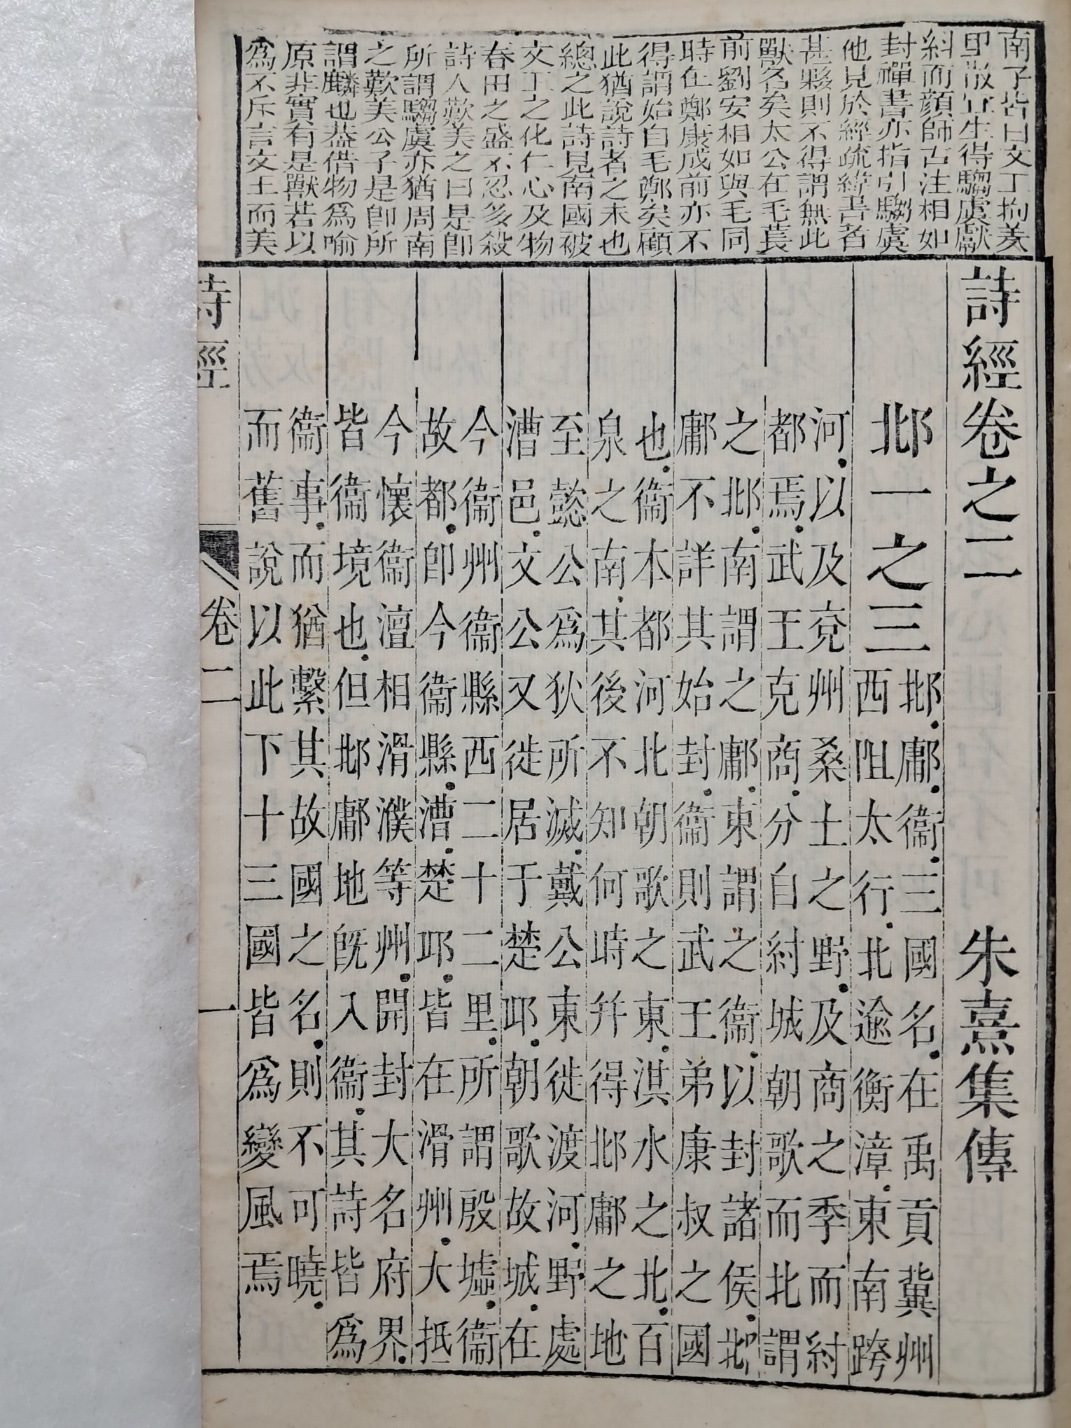 南子皆曰文王拘羑
里散宜生得騶虞獻
紂而顔師古注相如
封禪書亦指引騶虞
他見於經疏緯書者
甚夥則不得謂無此
獸名矣太公在毛萇
前劉安相如與毛同
時在鄭康成前亦不
得謂始自毛鄭矣顧
此猶說詩者之末也
總之此詩見南國被
文王之化仁心及物
春田之盛不忍多殺
詩人歎美之曰是卽
所謂騶虞亦猶周南
之歎美公子是卽所
謂麟也葢借物爲喻
原非實有是獸若以
爲不斥言文王而美
詩經卷之二 朱熹集傳
邶一之三
邶.鄘.衞.三國名.在禹貢冀州
西阻太行.北逾衡漳.東南跨
河.以及兗州桑土之野.及商之季而紂
都焉.武王克商.分自紂城朝歌而北謂
之邶.南謂之鄘.東謂之衞.以封諸侯.邶
鄘不詳其始封.衞則武王弟康叔之國
也.衞本都河北朝歌之東.淇水之北.百
泉之南.其後不知何時幷得邶鄘之地
至懿公爲狄所滅.戴公東徙渡河.野處
漕邑.文公又徙居于楚丘.朝歌故城.在
今衞州衞縣西二十二里.所謂殷墟.衞
故都.卽今衞縣.漕.楚丘.皆在滑州.大抵
今懷衞澶相滑濮等州.開封大名府界.
皆衞境也.但邶鄘地旣入衞.其詩皆爲
衞事.而猶繫其故國之名.則不可曉.
而舊說以此下十三國皆爲變風焉
詩經
卷二
一